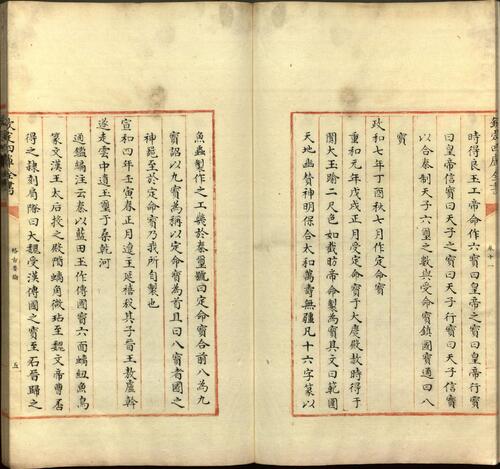 欽定四庫全書
時得良玉工帝命作六寶曰皇帝之寶曰皇帝行寶
曰皇帝信寶曰天子之寶曰天子行寶曰天子信寶
以合秦制天子六璽之數與受命寶鎮國寶通曰八
寶
政和七年丁酉秋七月作定命寶
重和元年戊戌正月受定命寶于大慶殿數時得于
闐大玉踰二尺色如截肪帝命製為寶其文曰範圍
天地幽贊神明保合太和萬壽無疆凡十六字篆以
魚蟲製作之工幾於秦璽號曰定命寶合前八為九
寶詔以九寶為稱以定命寶為首且曰八寶者國之
神器至於定命寶乃我所自製也
宣和四年壬寅春正月遼主延禧殺其子晉王敖盧斡
遂走雲中遺玉璽于桑乾河
通鑑編注云秦以藍田玉作傳國寶六面螭紐魚鳥
篆文漢王太后投之殿階螭角微玷至魏文帝曹丕
得之隸刻肩際曰大魏受漢傳國之寶至石晉歸之
欽定四庫全書
五